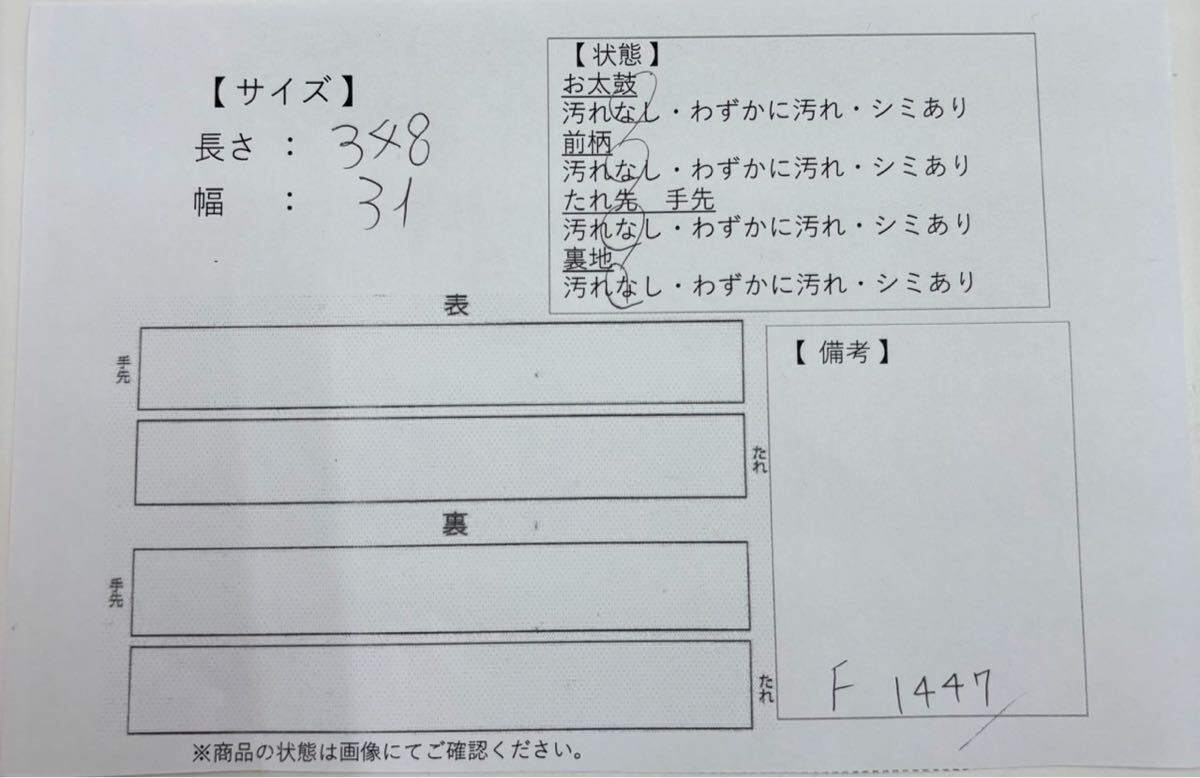 【サイズ】
長さ : 348
幅 : 31
【状態】
お太鼓
汚れなし・わずかに汚れ・シミあり
前柄
汚れなし・わずかに汚れ・シミあり
たれ先 手先
汚れなし・わずかに汚れ・シミあり
裏地
汚れなし・わずかに汚れ・シミあり
表
手先
たれ
裏
手先
たれ
【備考】
F 1447
※商品の状態は画像にてご確認ください。